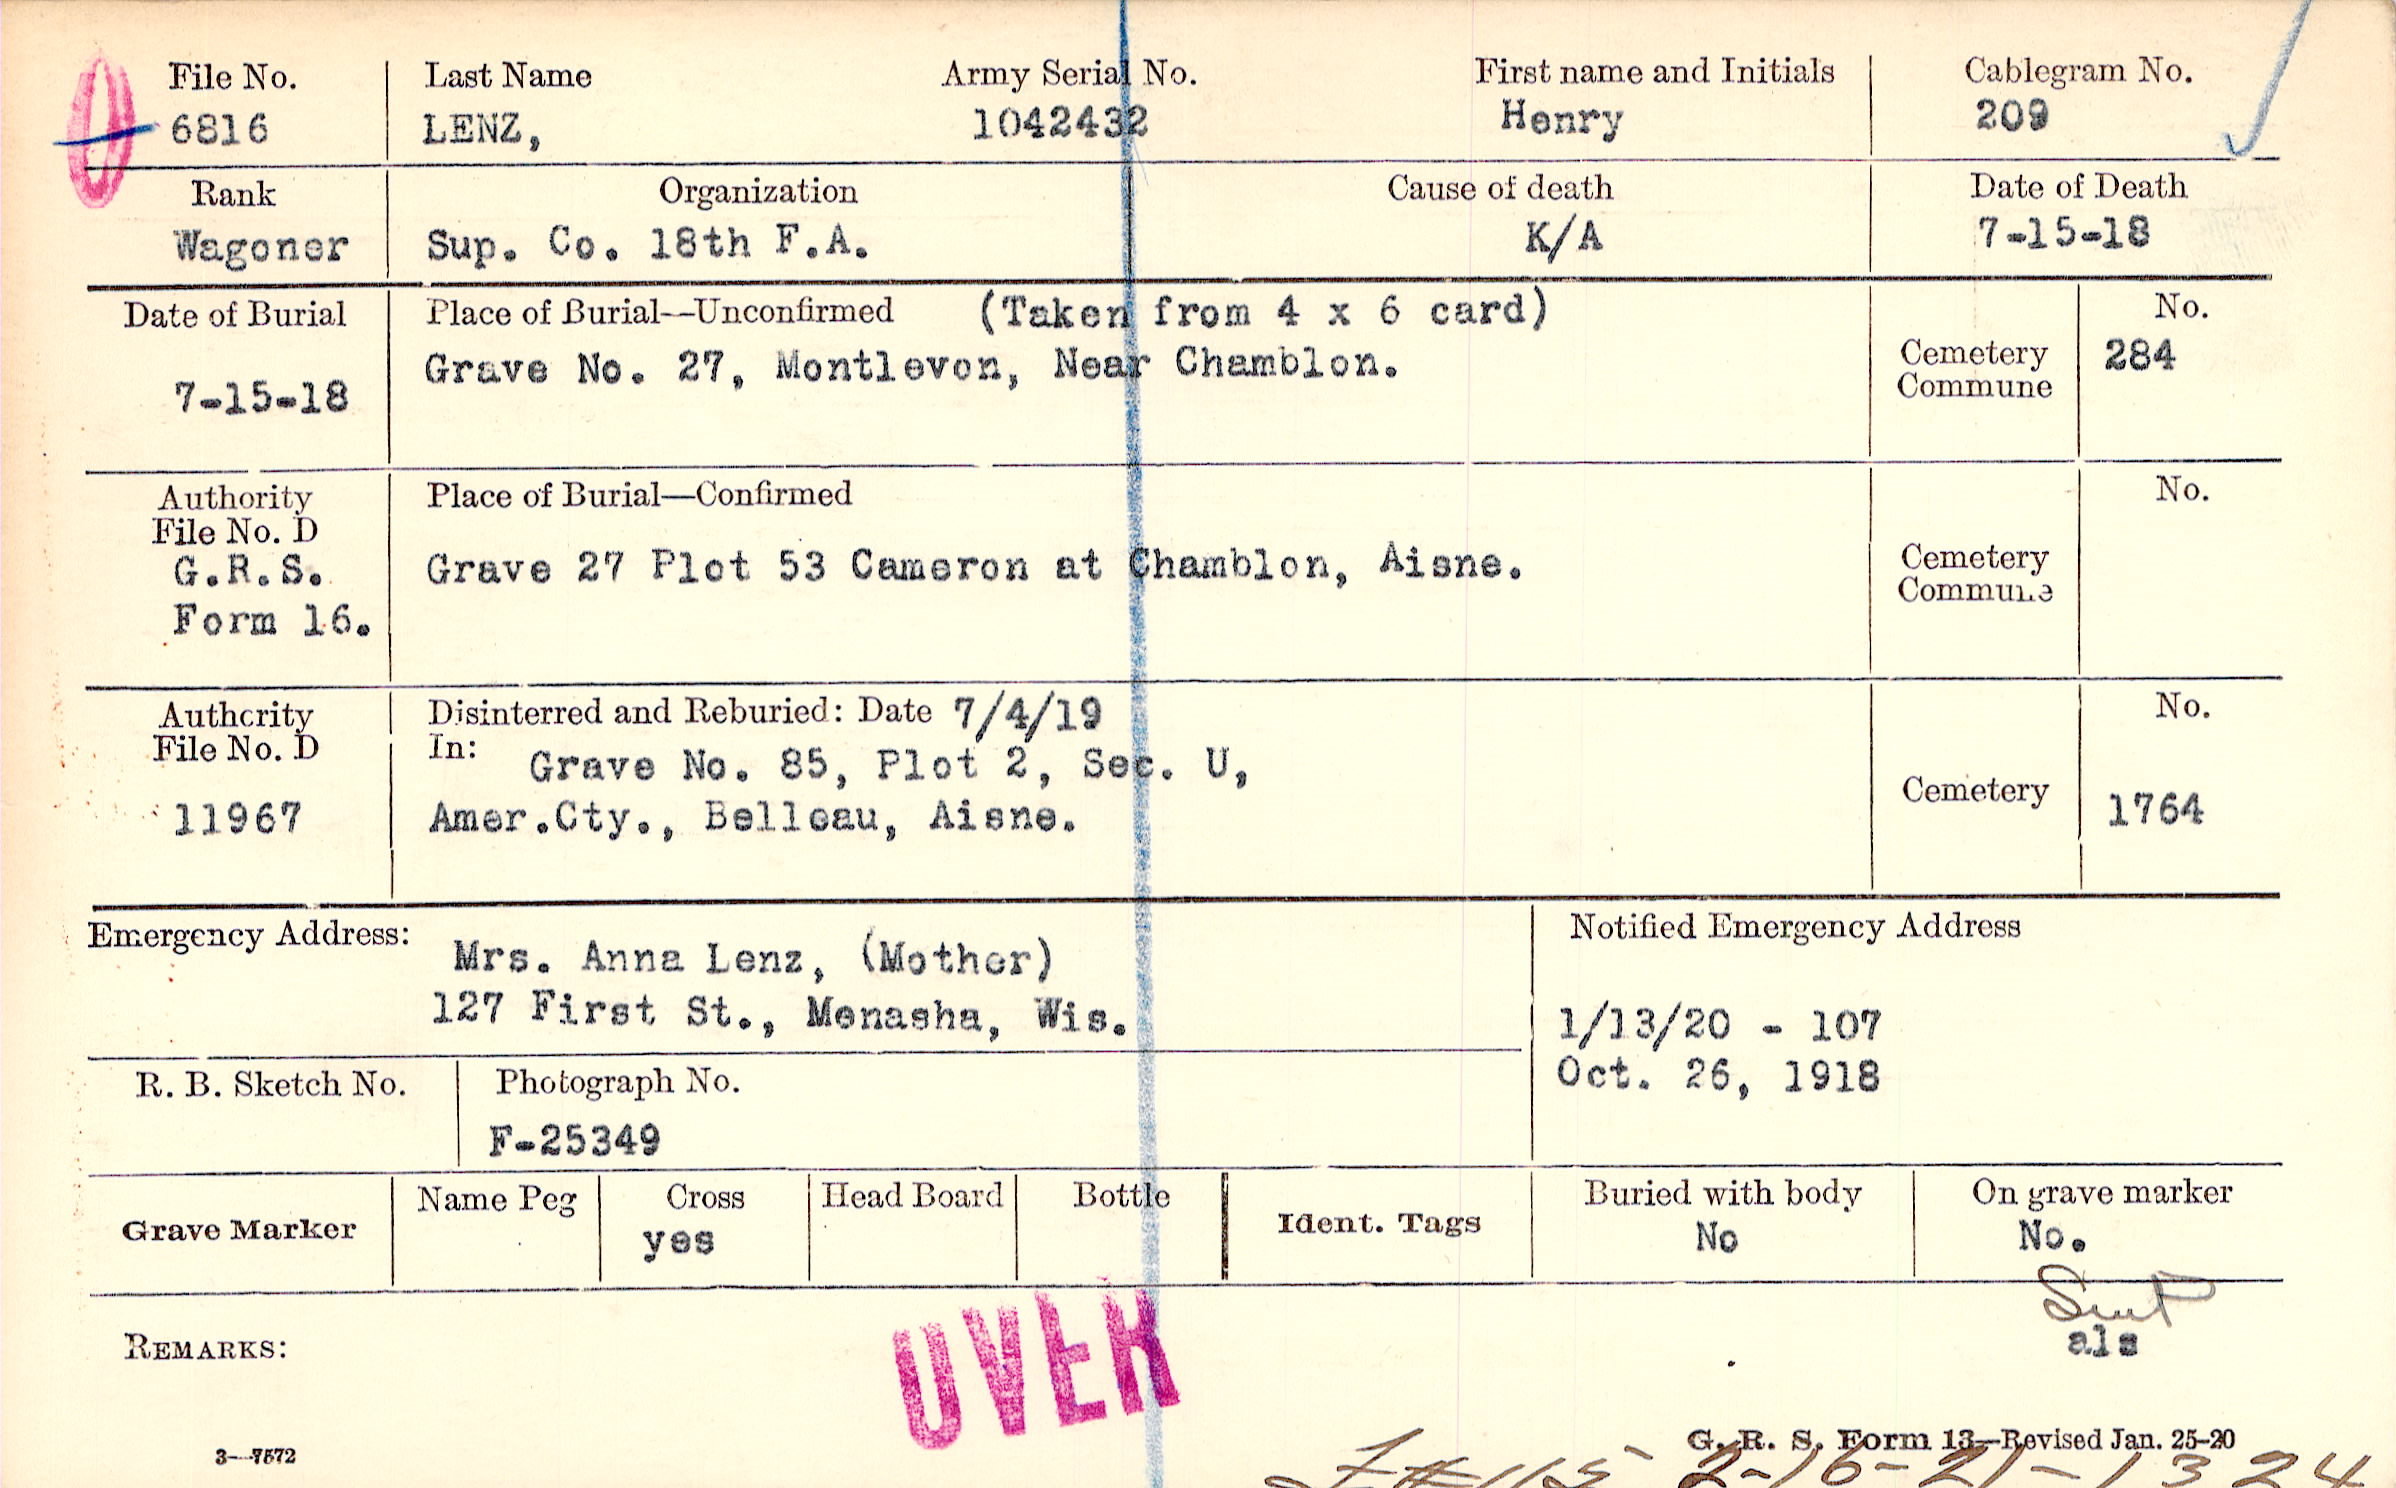 File No. Last Name Army Serial No. First name and Initials Cablegram No.
6816 LENZ, 1042432 Henry 209
Rank Organization Cause of death Date of Death
Wagoner Sup. Co. 18th F.A. K/A 7-15-18
Date of Burial Place of Burial—Unconfirmed (Taken from 4 x 6 card) No.
7-15-18 Grave No. 27, Montlevon, Near Chamblon. Cemetery 284
Commune
Authority Place of Burial—Confirmed No.
File No. D
G.R.S. Grave 27 Plot 53 Cameron at Chamblon, Aisne. Cemetery
Form 16. Commune
Authority Disinterred and Reburied: Date 7/4/19 No.
File No. D In: Grave No. 85, Plot 2, Sec. U,
11967 Amer.Cty., Belleau, Aisne. Cemetery 1764
Emergency Address: Notified Emergency Address
Mrs. Anna Lenz, (Mother)
127 First St., Menasha, Wis. 1/13/20 - 107
R. B. Sketch No. Photograph No. Oct. 26, 1918
F-25349
Grave Marker Name Peg Cross Head Board Bottle Ident. Tags Buried with body On grave marker
yes No No.
Sent
als
REMARKS:
OVER
3—7572 G. R. S. Form 13—Revised Jan. 25-20
2-16-21-1324